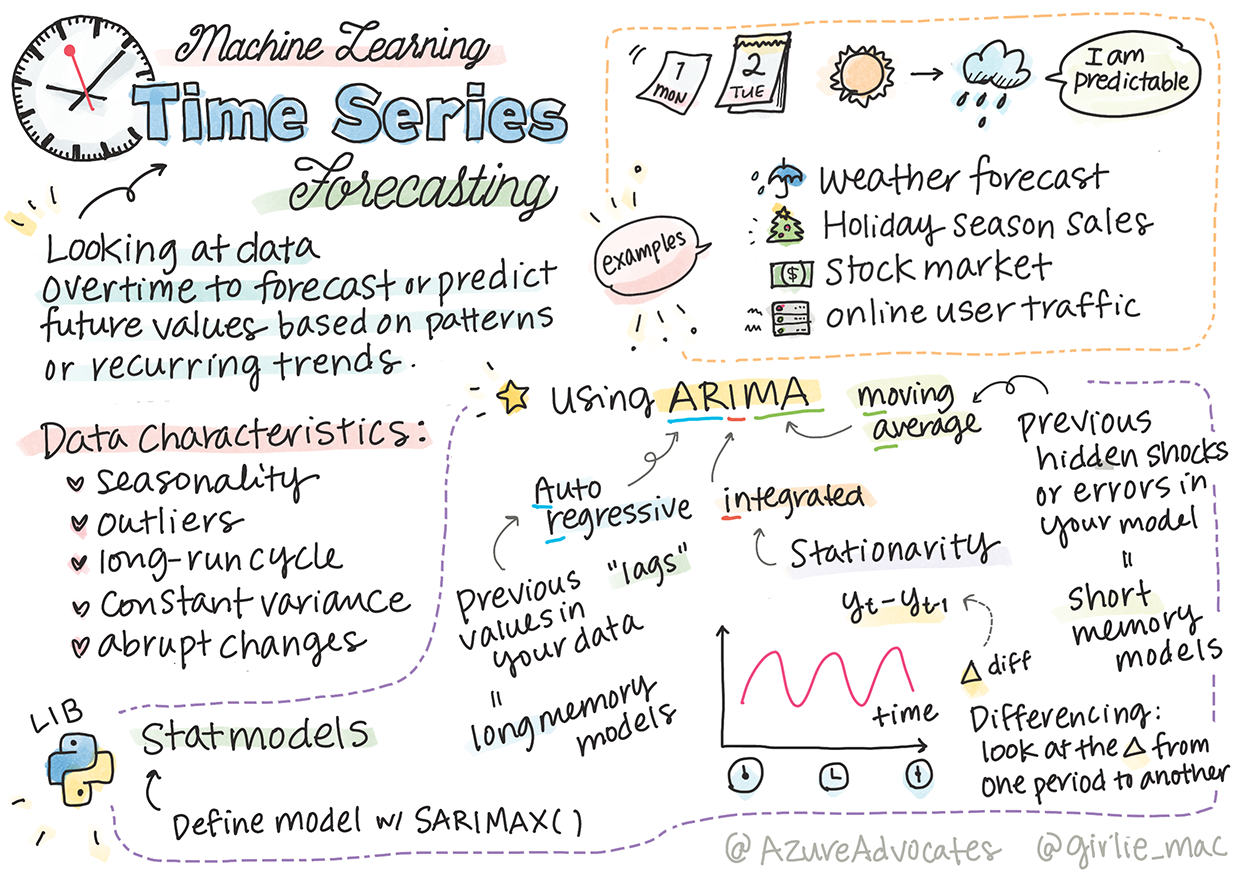 Machine Learning
Time Series
Forecasting
Looking at data
overtime to forecast or predict
future values based on patterns
or recurring trends.
1
MON
2
TUE
I am
predictable
examples
weather forecast
Holiday season sales
$
Stock market
online user traffic
Data Characteristics:
seasonality
outliers
long-run cycle
constant variance
abrupt changes
using ARIMA
moving
average
previous
hidden shocks
or errors in
your model
=
short
memory
models
Auto
regressive
integrated
"lags"
previous
values in
your data
=
long memory
models
Stationarity
yt - yt-1
△ diff
time
Differencing:
look at the △ from
one period to another
LIB
Statmodels
Define model w/ SARIMAX()
@AzureAdvocates @girlie_mac